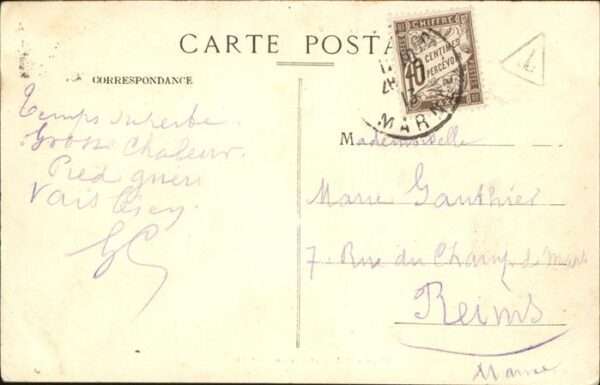 CARTE POSTA
CORRESPONDANCE
CHIFFRE
10 CENTIMES
A PERCEVOIR
MARNE
T
Temps superbe
Grosse Chaleur.
Pied guéri
Vais bien
GC
Mademoiselle
Marie Gauthier
7 - Rue du Champ d Mars
Reims
Marne